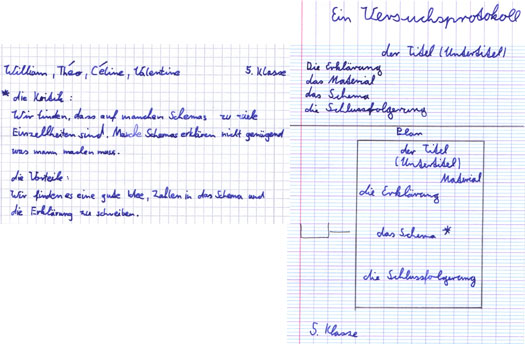 William, Théo, Céline, Valentine 5. Klasse
* die Kritik :
Wir finden, dass auf manchen Schemas zu viele
Einzellheiten sind. Manche Schemas erklären nicht genügend
was mann machen muss.
die Vorteile :
Wir finden es eine gute Idee, Zahlen in das Schema und
die Erklärung zu schreiben.
Ein Versuchsprotokoll
der Titel (Untertitel)
Die Erklärung
das Material
das Schema
die Schlussfolgerung
Plan
der Titel
(Untertitel)
Material
die Erklärung
das Schema *
die Schlussfolgerung
5. Klasse